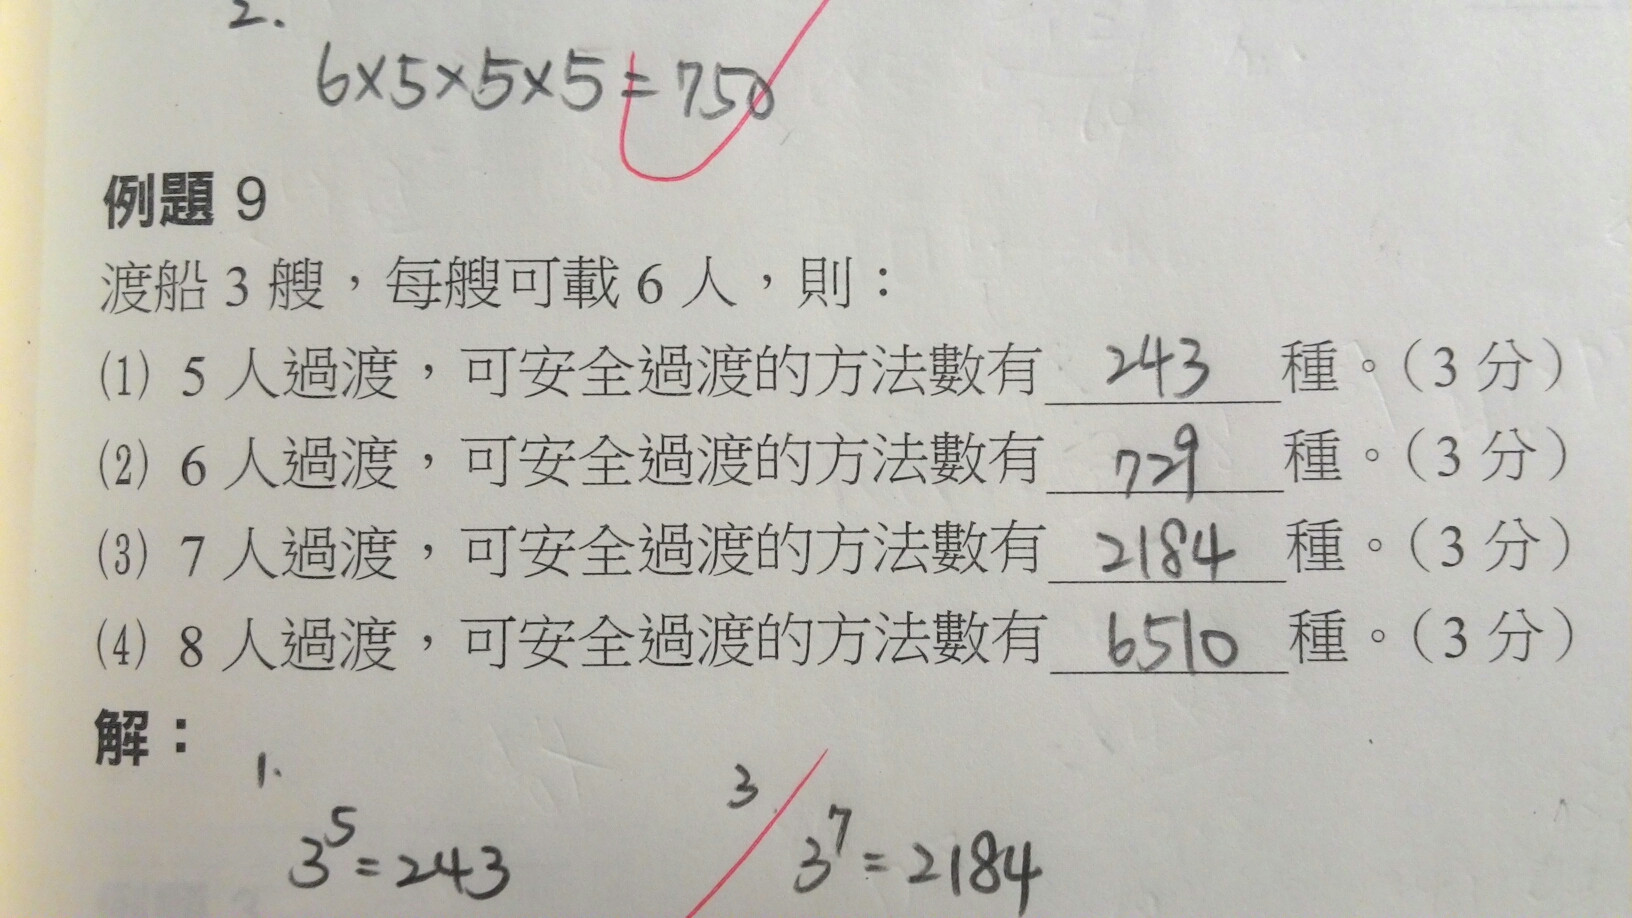 2.
6×5×5×5=750
例題 9
渡船 3 艘，每艘可載 6 人，則：
(1) 5 人過渡，可安全過渡的方法數有 243 種。(3 分)
(2) 6 人過渡，可安全過渡的方法數有 729 種。(3 分)
(3) 7 人過渡，可安全過渡的方法數有 2184 種。(3 分)
(4) 8 人過渡，可安全過渡的方法數有 6510 種。(3 分)
解：
1. 3
3⁵=243 3⁷=2184